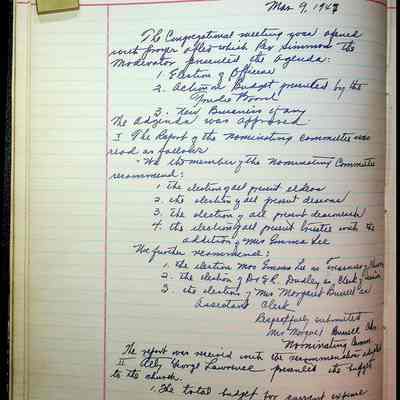 Mar 9, 1947
The Congregational meeting was opened
with prayer after which Rev Simmons the
Moderator presented the agenda:
1. Election of Officers
2. Action on Budget presented by the
Board
3. New Business if any
The agenda was approved.
I The Report of the Nominating Committee was
read as follows
"We the member of the Nominating Committee
recommend:
1. the election of all present elders
2. the election of all present deacons
3. The election of all present deaconesses
4. the election of all present trustee with the
addition of Mrs Emma Lee
We further recommend:
1. the election Mrs Emma Lee as Treasurer of
2. the election of Dr E.R. Dudley as Clerk of
3. the election of Mrs Margaret Burrell as
Assistant Clerk
Respectfully submitted
Mrs Margaret Burrell Chr.
Nominating Comm
The report was received with the recommendations adopted
II Atty George Lawrence presented the budget
to the church.
1. The total budget for current expense